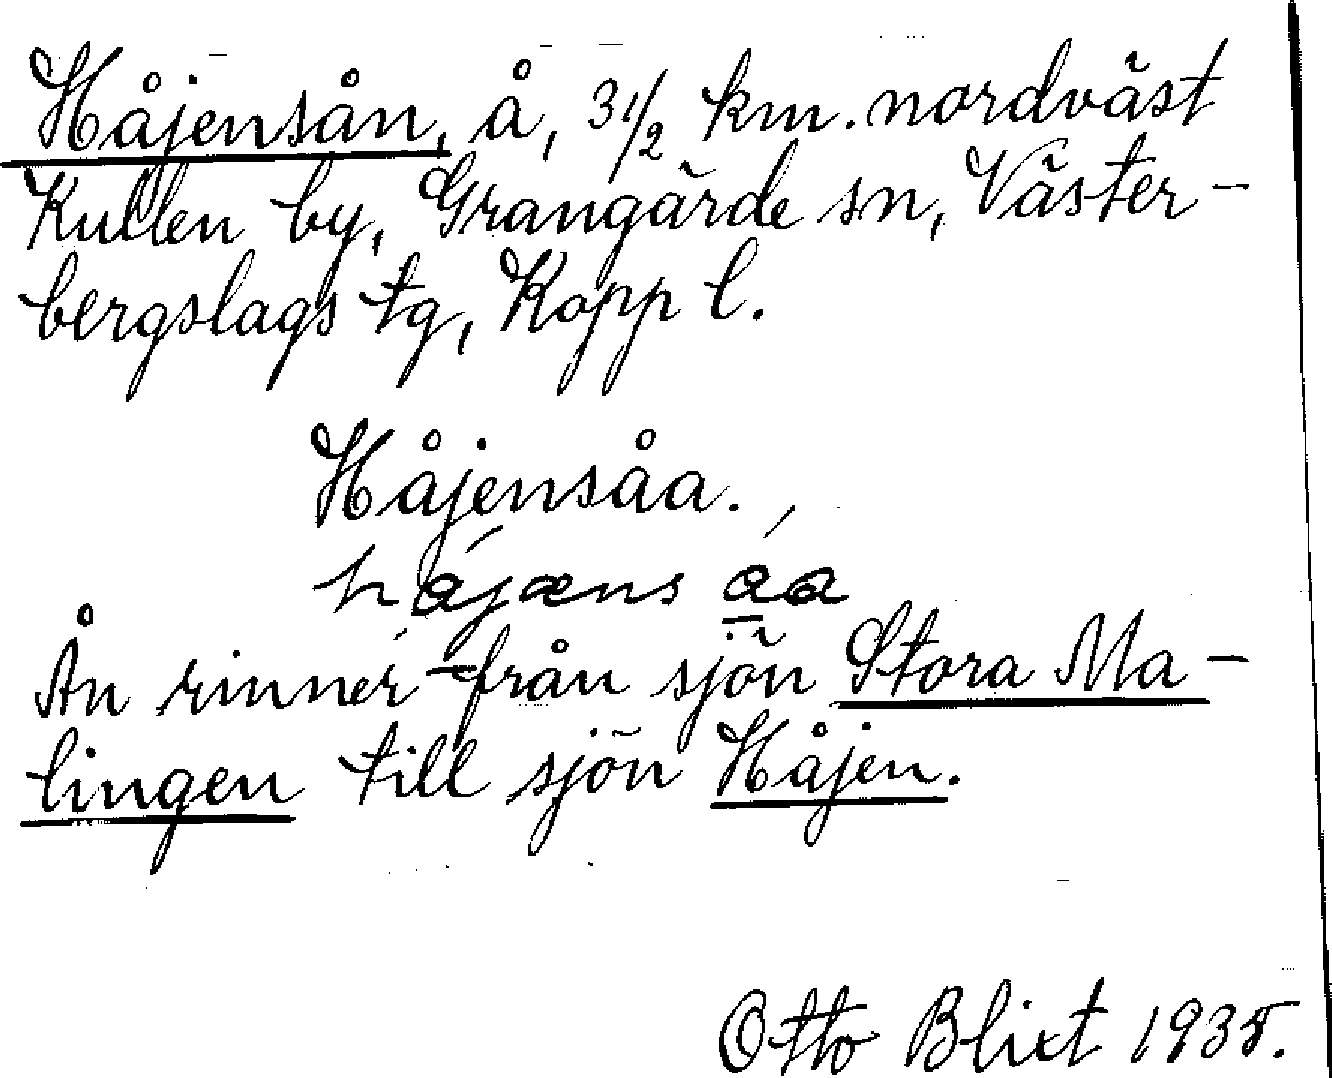 Håjensån, å, 3 1/2 km. nordväst
Kullen by, Grangärde sn, Väster-
bergslags tg, Kopp l.
Håjensåa.
håjæns åa
Ån rinner från sjön Stora Ma-
lingen till sjön Håjen.
Otto Blixt 1935.